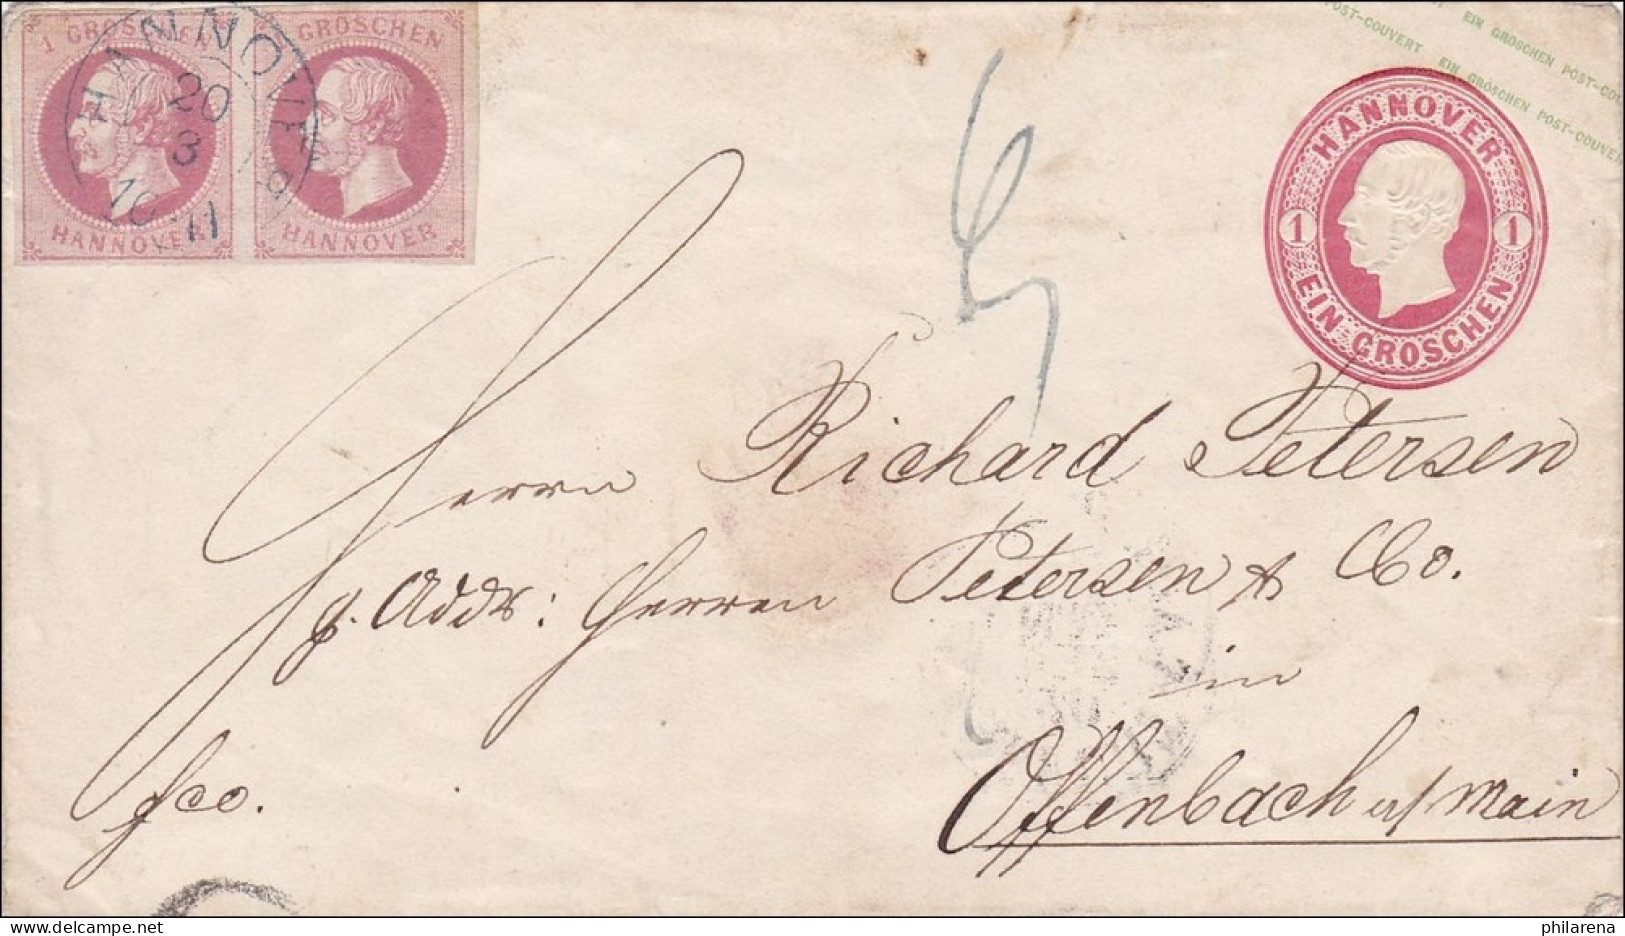 1 GROSCHEN
GROSCHEN
HANNOVER
20
3
10-11
HANNOVER
HANNOVER
POST-COUVERT
EIN GROSCHEN POST-COU
EIN GROSCHEN POST-COUVER
HANNOVER
1 1
EIN GROSCHEN
Herrn Richard Petersen
p. Addr: Herren Petersen & Co.
in
fco.
Offenbach a/Main
philarena.com